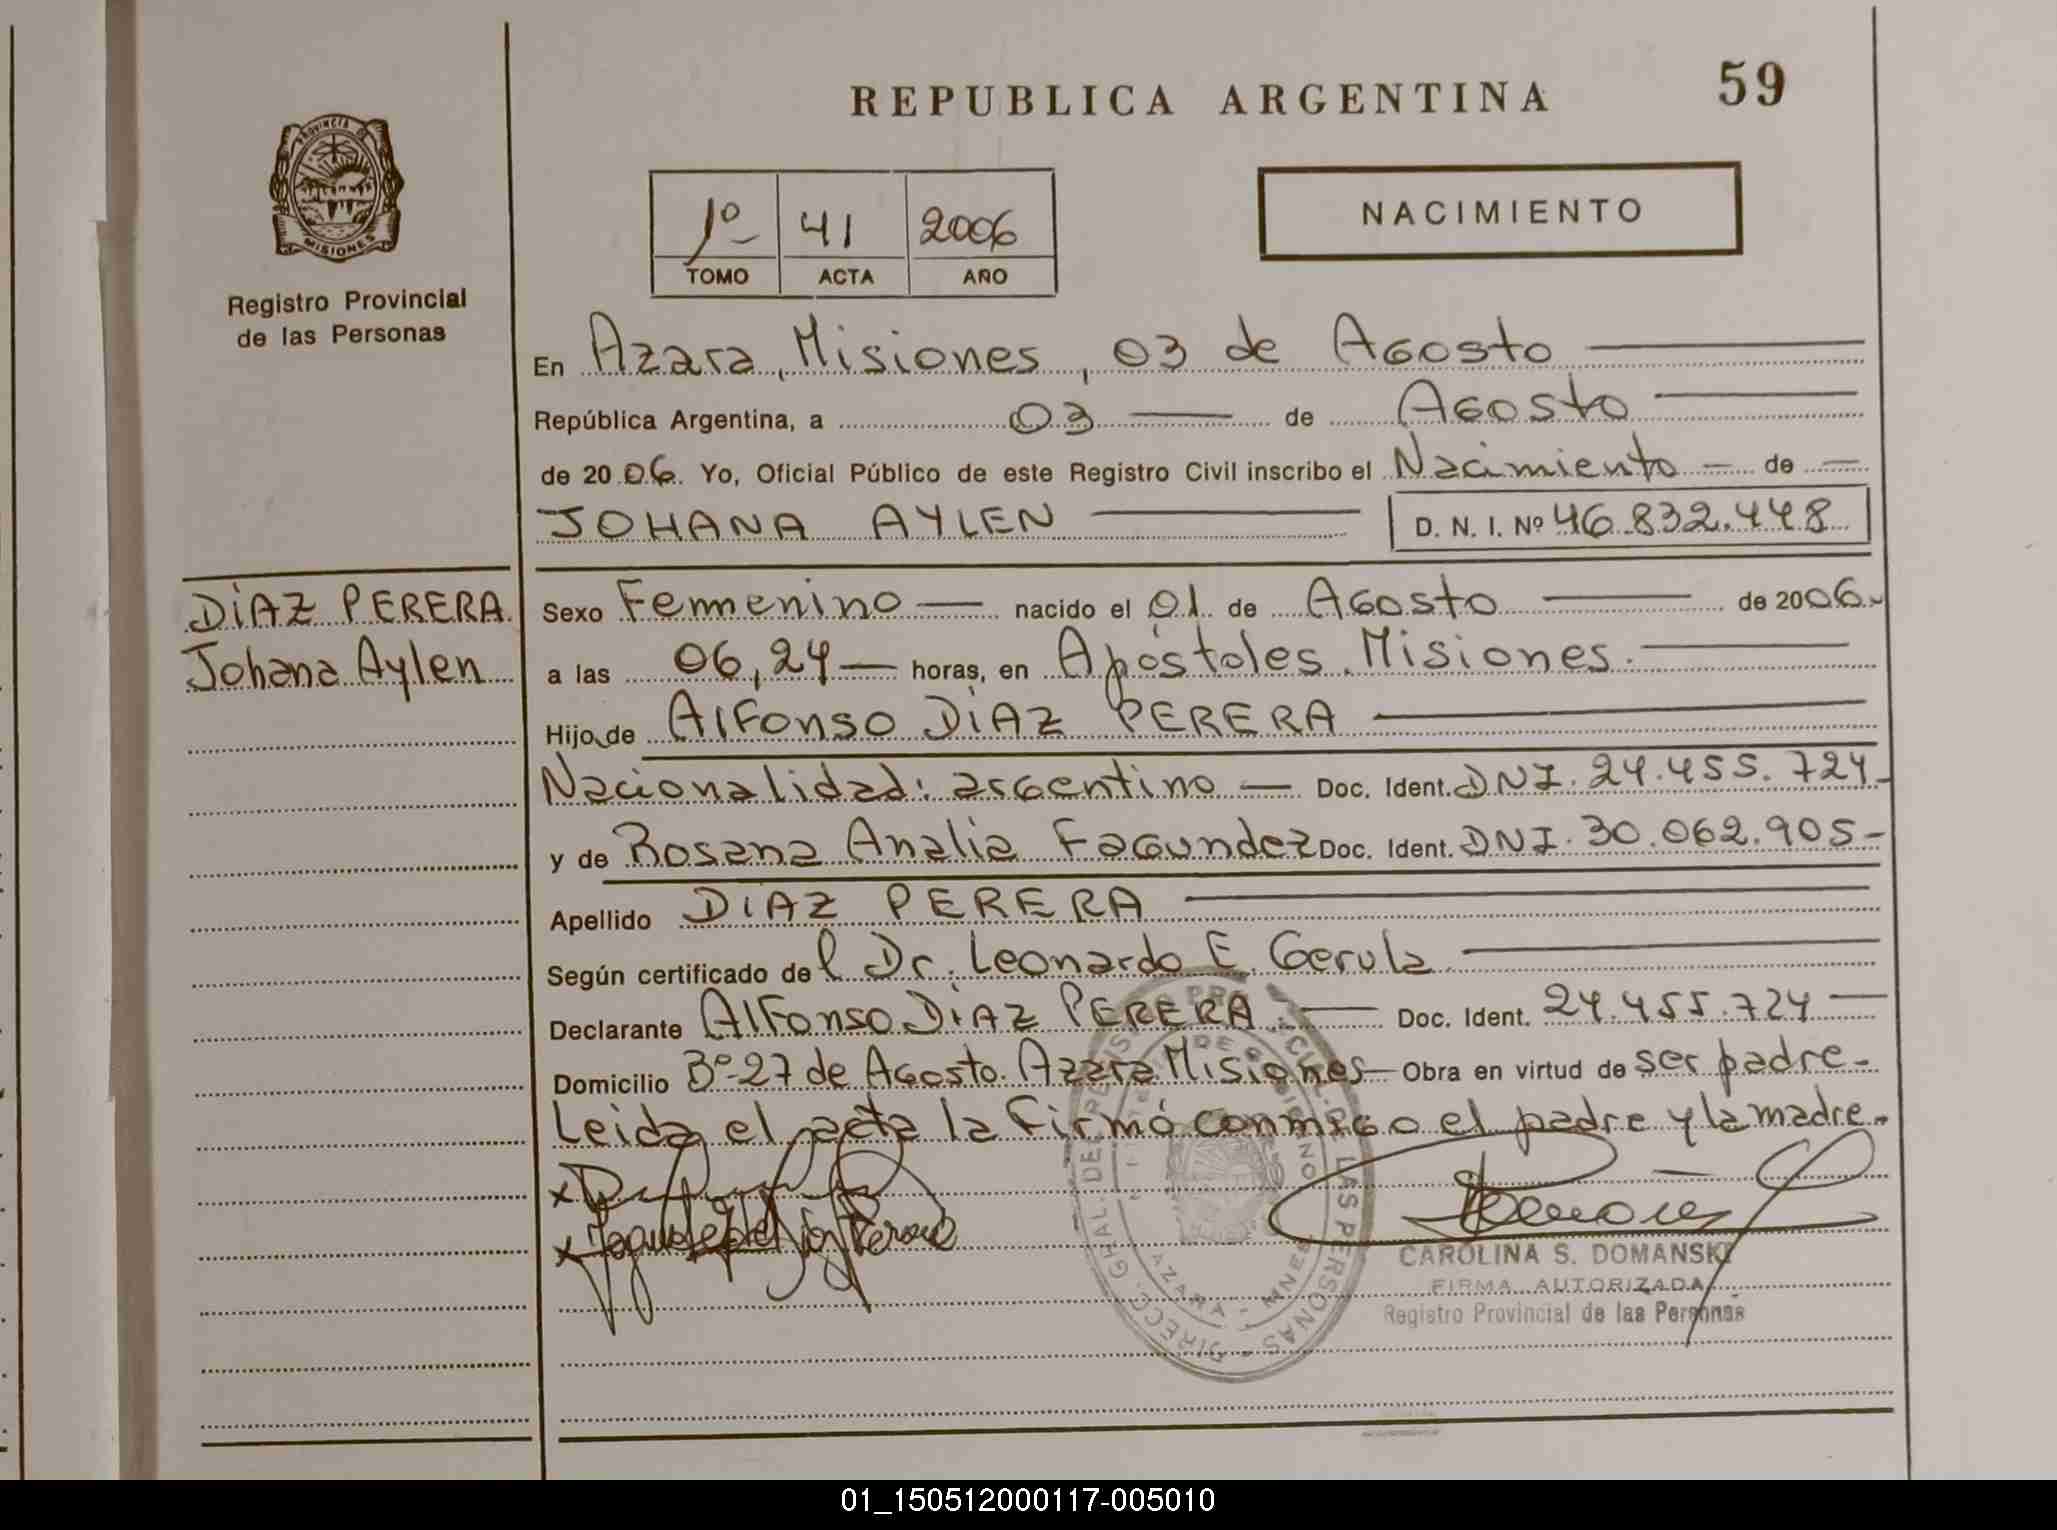 REPUBLICA ARGENTINA
59
PROVINCIA DE
MISIONES
Registro Provincial
de las Personas
1º 41 2006
TOMO ACTA AÑO
NACIMIENTO
En Azara, Misiones, 03 de Agosto
República Argentina, a 03 de Agosto
de 2006. Yo, Oficial Público de este Registro Civil inscribo el Nacimiento de
JOHANA AYLEN D. N. I. Nº 46.832.448
DIAZ PERERA
Johana Aylen
Sexo Femenino nacido el 01 de Agosto de 2006.
a las 06,24 horas, en Apóstoles, Misiones.
Hijo de Alfonso DIAZ PERERA
Nacionalidad: argentino Doc. Ident. DNI. 24.455.724
y de Rosana Analia Fagundez Doc. Ident. DNI. 30.062.905
Apellido DIAZ PERERA
Según certificado del Dr. Leonardo E. Gerula
Declarante Alfonso DIAZ PERERA Doc. Ident. 24.455.724
Domicilio Bº 27 de Agosto. Azara Misiones Obra en virtud de ser padre
Leida el acta la firmó conmigo el padre y la madre.
x
x
DE LAS PERSONAS - DIRECC. GRAL. DE
AZARA - MNES
CAROLINA S. DOMANSKI
FIRMA AUTORIZADA
Registro Provincial de las Personas
01_150512000117-005010